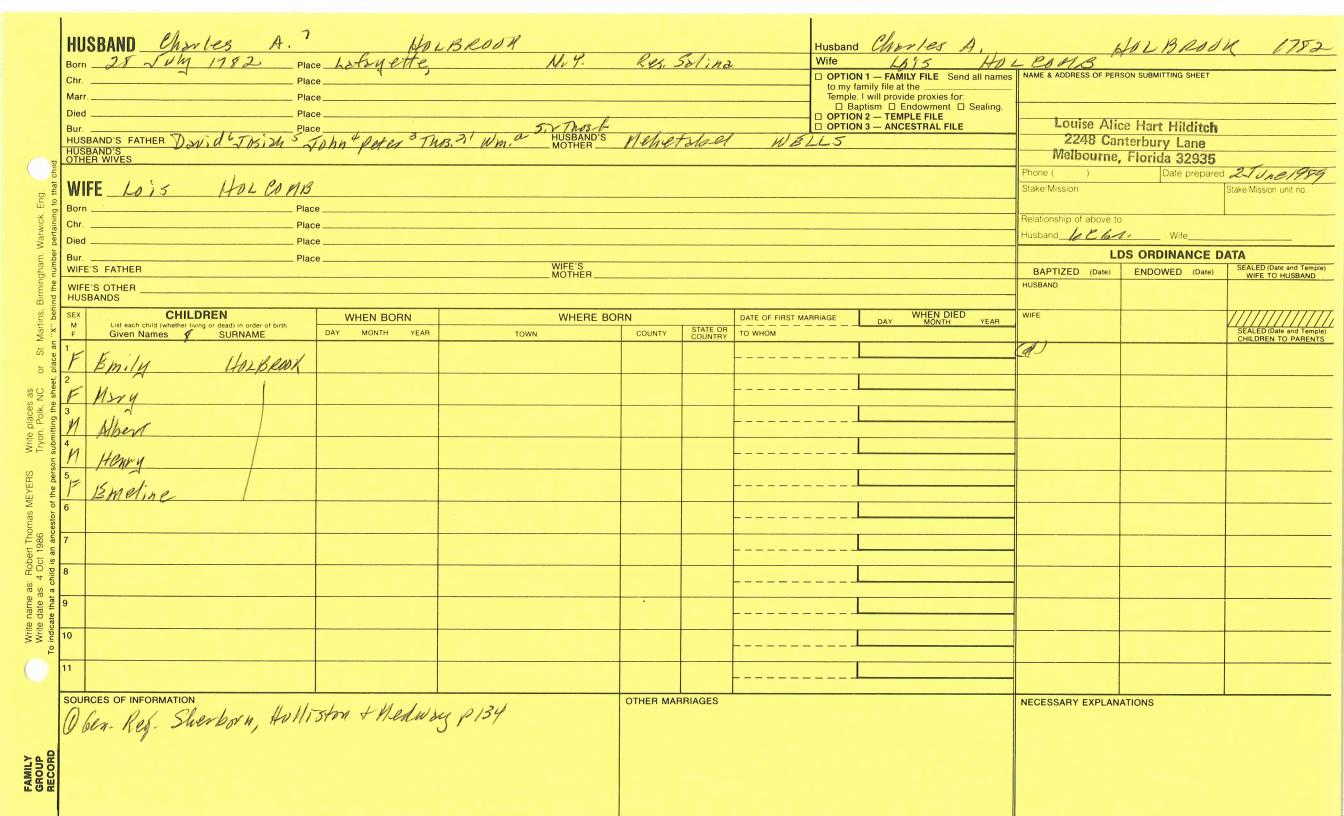 HUSBAND Charles A. 7 HOLBROOK
Born 28 July 1782 Place Lafayette, N.Y. Res. Salina
Chr. Place
Marr. Place
Died Place
Bur. Place
HUSBAND'S FATHER David 6 Josiah 5 John 4 Peter 3 Thos. 2,1 Wm. a HUSBAND'S MOTHER Mehetabel WELLS
HUSBAND'S OTHER WIVES
Husband Charles A. HOLBROOK 1782
Wife Lois HOLCOMB
☐ OPTION 1 — FAMILY FILE Send all names
to my family file at the
Temple. I will provide proxies for:
☐ Baptism ☐ Endowment ☐ Sealing.
☐ OPTION 2 — TEMPLE FILE
☐ OPTION 3 — ANCESTRAL FILE
NAME & ADDRESS OF PERSON SUBMITTING SHEET
Louise Alice Hart Hilditch
2248 Canterbury Lane
Melbourne, Florida 32935
Phone ( ) Date prepared 2 June 1989
Stake/Mission Stake/Mission unit no.
Relationship of above to
Husband Wife
WIFE Lois HOLCOMB
Born Place
Chr. Place
Died Place
Bur. Place
WIFE'S FATHER WIFE'S MOTHER
WIFE'S OTHER HUSBANDS
LDS ORDINANCE DATA
BAPTIZED (Date) ENDOWED (Date) SEALED (Date and Temple) WIFE TO HUSBAND
HUSBAND
WIFE
SEALED (Date and Temple) CHILDREN TO PARENTS
SEX M F
CHILDREN
List each child (whether living or dead) in order of birth
Given Names SURNAME
WHEN BORN
DAY MONTH YEAR
WHERE BORN
TOWN COUNTY STATE OR COUNTRY
DATE OF FIRST MARRIAGE
TO WHOM
WHEN DIED
DAY MONTH YEAR
1 F Emily HOLBROOK
2 F Mary
3 M Albert
4 M Henry
5 F Emeline
6
7
8
9
10
11
SOURCES OF INFORMATION
① Gen. Reg. Sherborn, Holliston + Medway p 134
OTHER MARRIAGES
NECESSARY EXPLANATIONS
Write name as: Robert Thomas MEYERS Write places as Tryon, Polk, NC or St Martins, Birmingham, Warwick, Eng
Write date as: 4 Oct 1986
To indicate that a child is an ancestor of the person submitting the sheet, place an "X" behind the number pertaining to that child
FAMILY
GROUP
RECORD